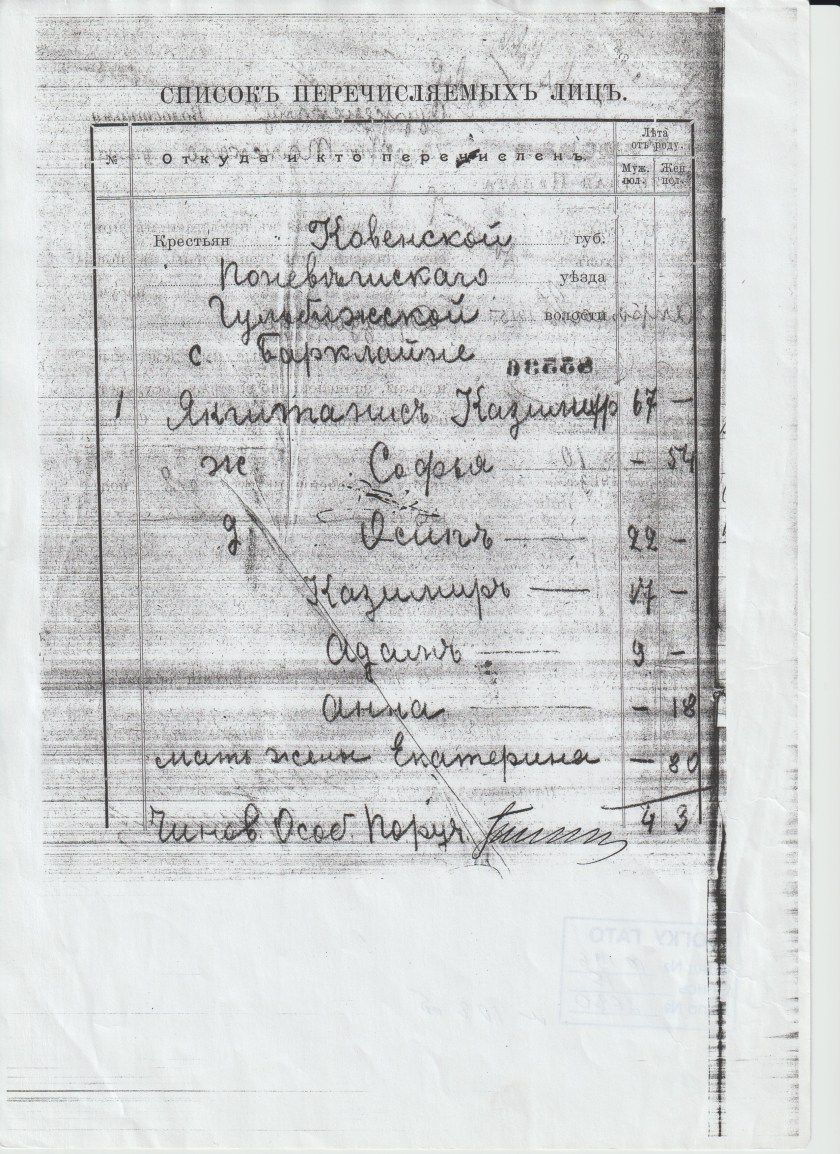 СПИСОКЪ ПЕРЕЧИСЛЯЕМЫХЪ ЛИЦЪ.
№ Откуда и кто перечисленъ. Лѣта отъ роду.
Муж. пол. Жен. пол.
Крестьян Ковенской губ.
Поневѣжискаго уѣзда
волости
с. Барклайне
1 Якштанисъ Казимир 67 —
ж Софья — 54
д Осипъ — 22 —
Казимиръ — 17 —
Адамъ — 9 —
Анна — — 18
мать жены Екатерина — 80
Чинов Особ Поруч 4 3
ОГКУ ГАТО